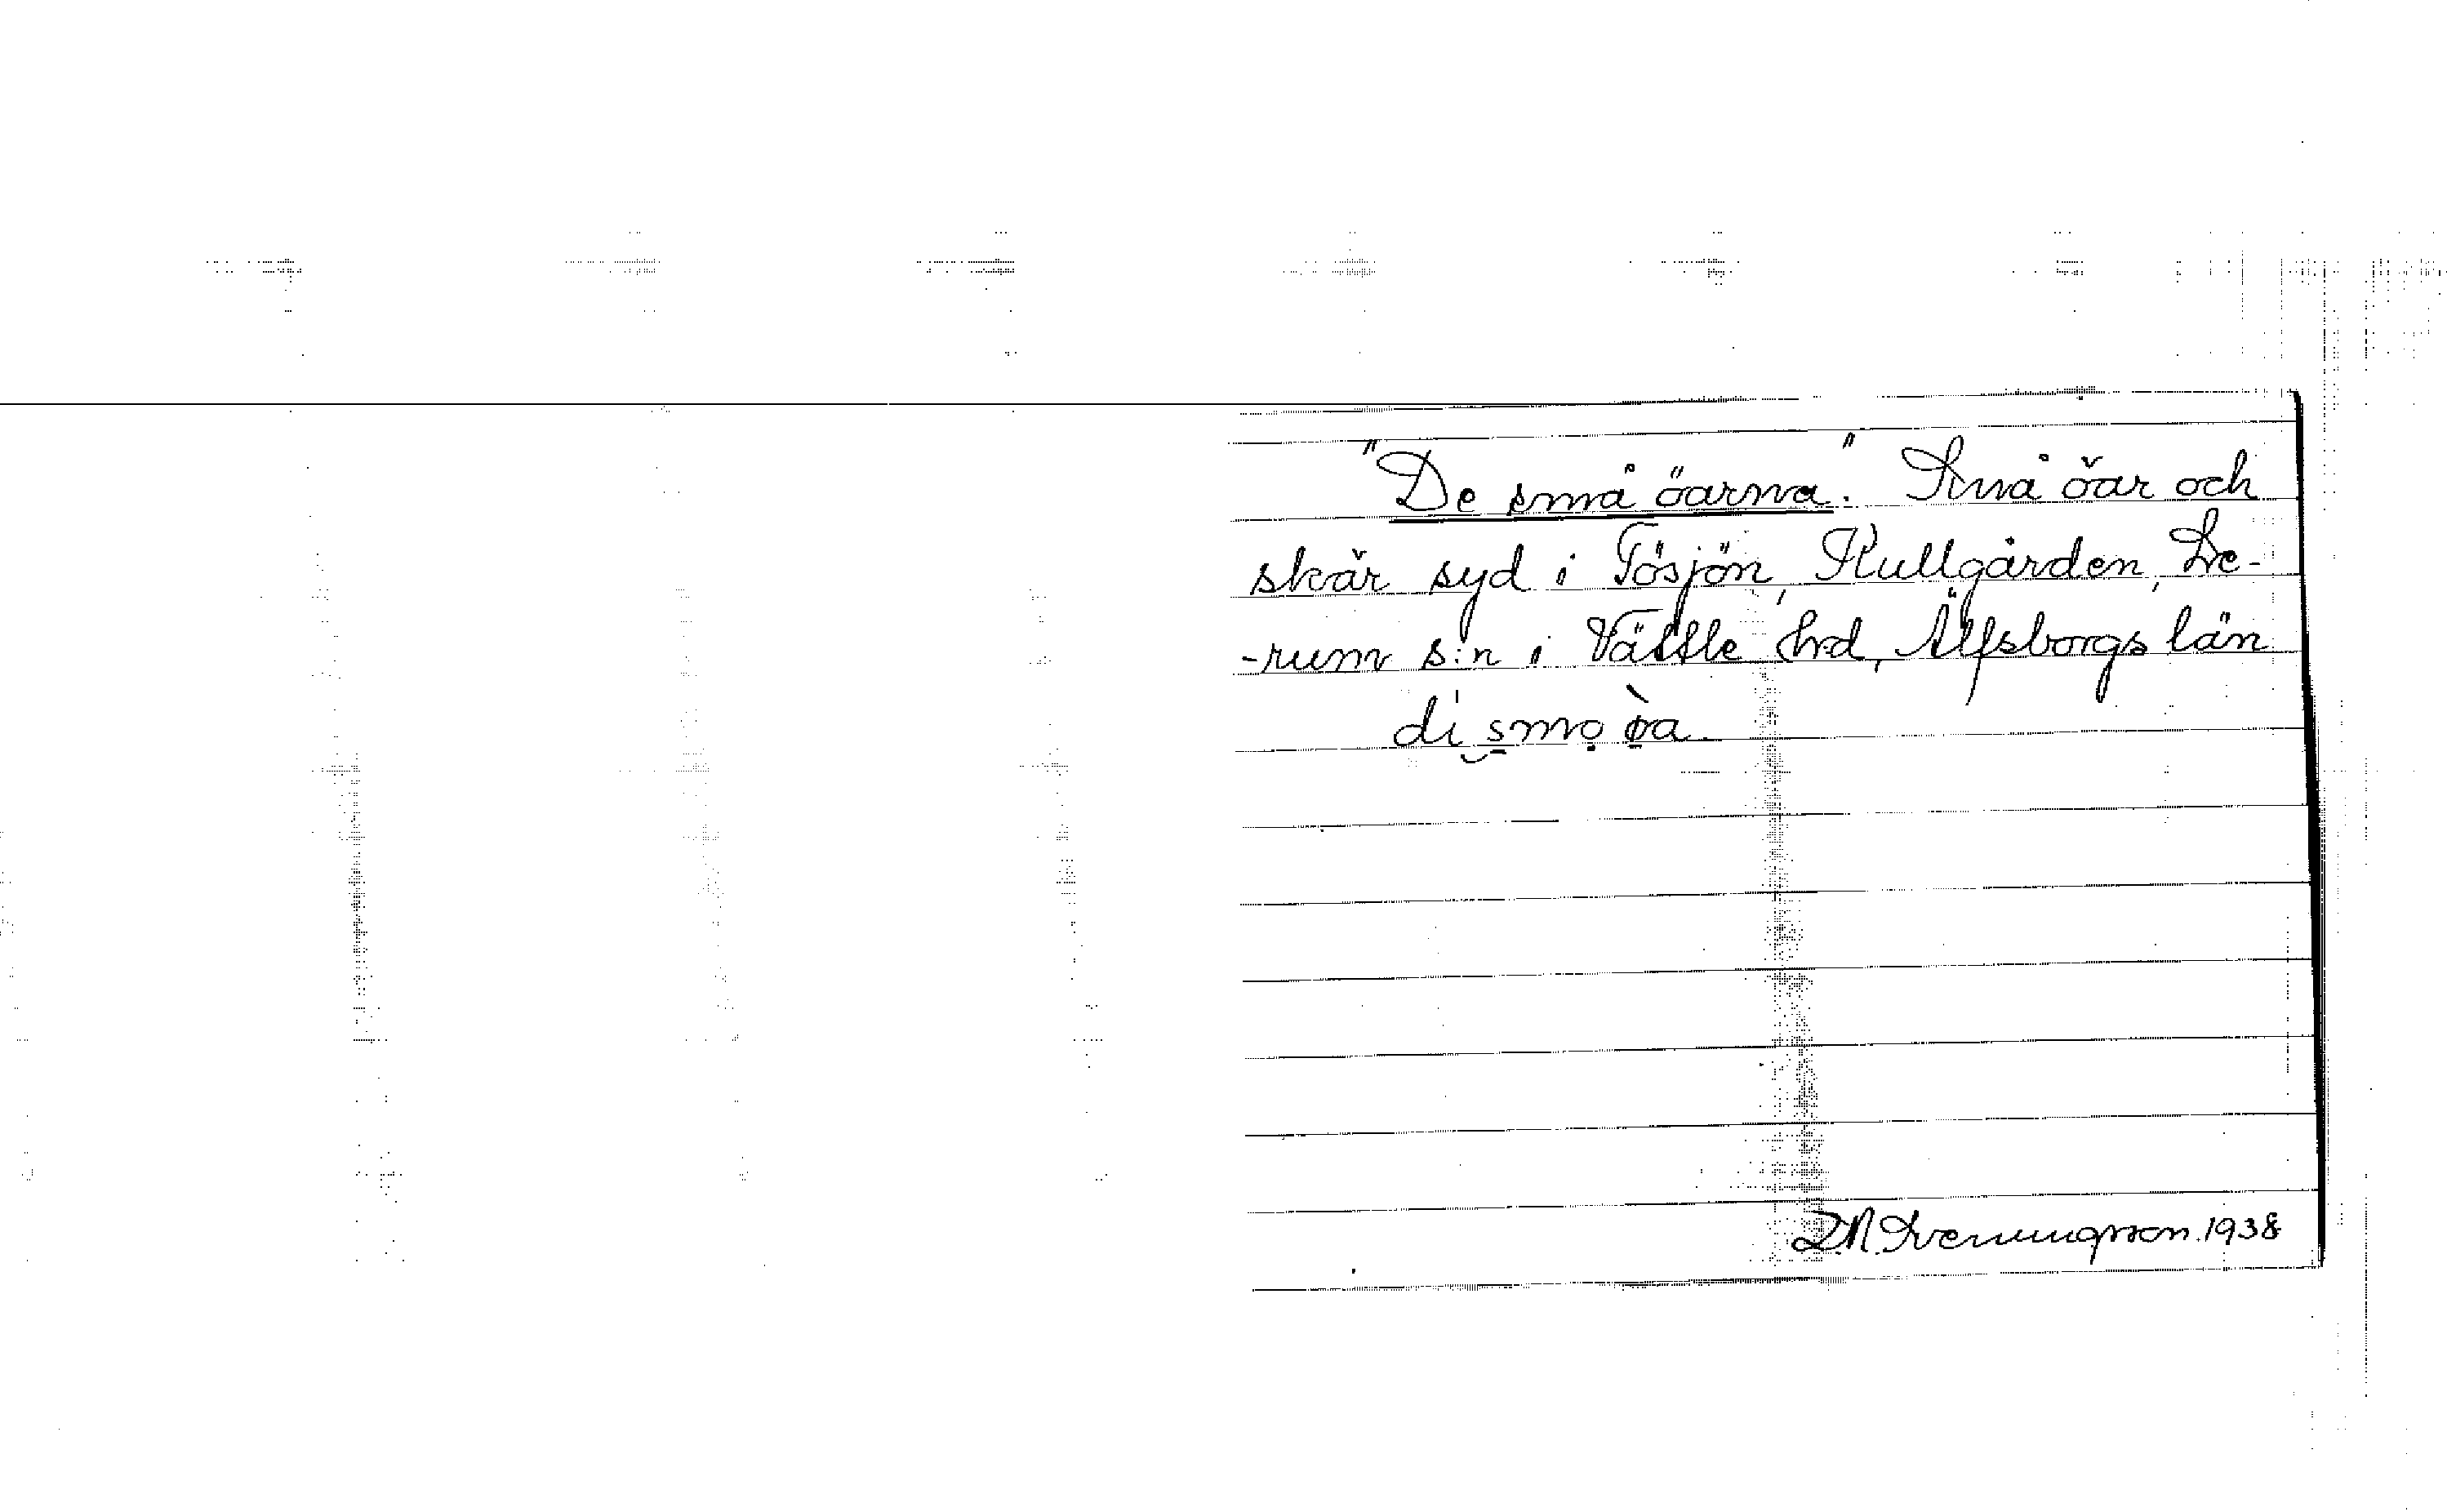 "De små öarna". Små öar och
skär syd i Tösjön, Kullgården, Le-
-rum s:n i Vättle hd, Älfsborgs län
di smo öa.
D.N. Svenungsson. 1938